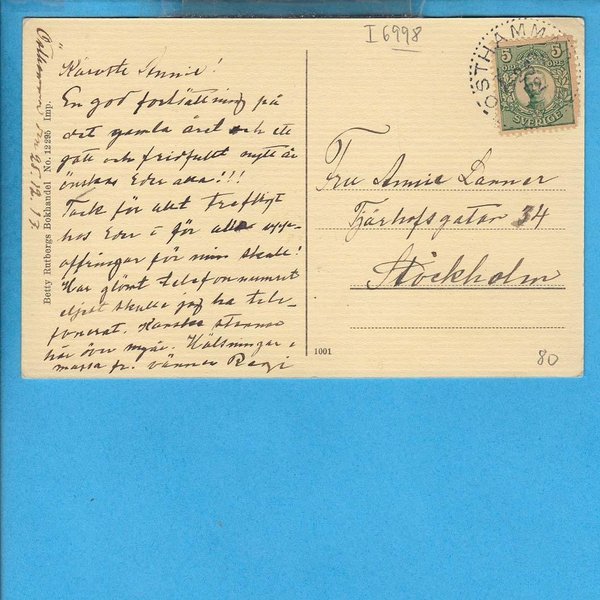 I 6998
ÖSTHAMMAR
5 5
ÖRE ÖRE
SVERIGE
den 25.12.17.
Betty Rutbergs Bokhandel No. 12295 Imp.
Käraste Annie!
En god fortsättning på
det gamla året och ett
gott och fridfullt nytt år
önskas Eder alla!!!
Tack för allt trefligt
hos Eder & för alla upp-
offringar för min skull!
Har glömt telefonnumret
eljest skulle jag ha tele-
fonerat. Kanske stannar
här över nyår. Hälsningar i
massa fr. vännen
Fru Annie Lanner
Tjärhofsgatan 34
Stockholm
1001
80